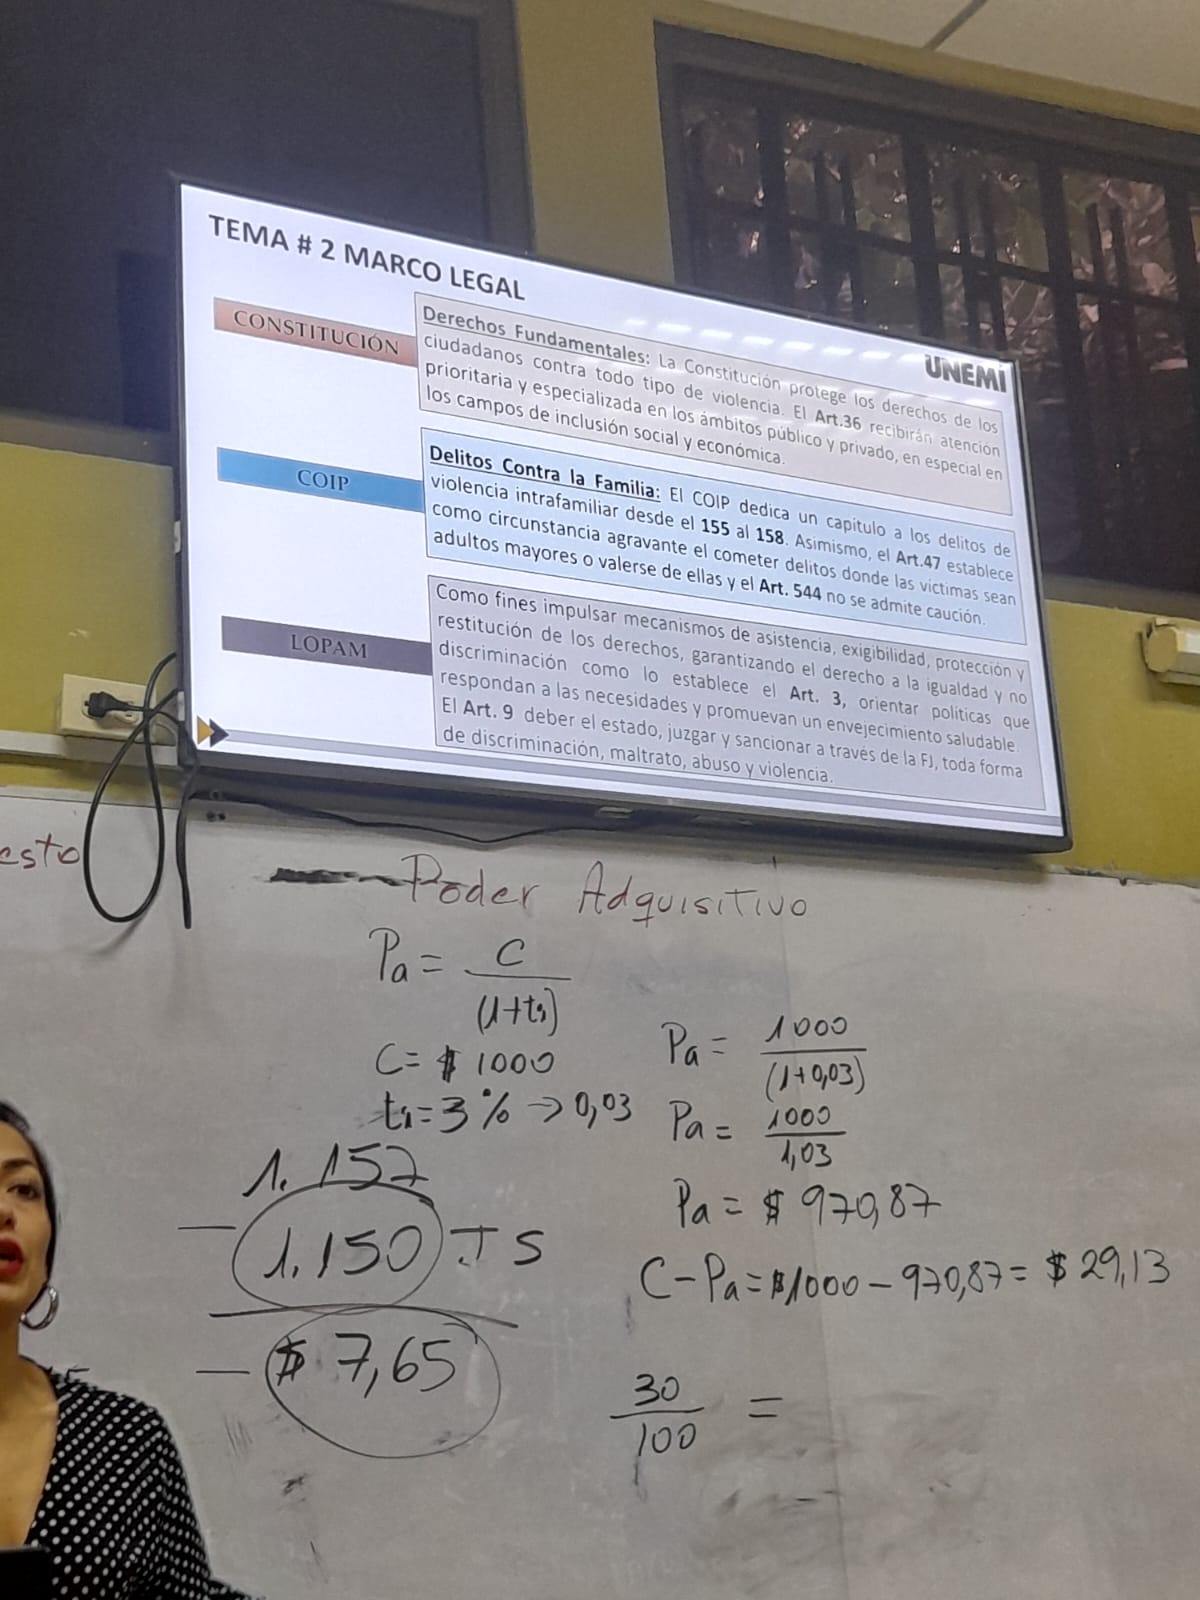 TEMA # 2 MARCO LEGAL
UNEMI
CONSTITUCIÓN
Derechos Fundamentales: La Constitución protege los derechos de los
ciudadanos contra todo tipo de violencia. El Art.36 recibirán atención
prioritaria y especializada en los ámbitos público y privado, en especial en
los campos de inclusión social y económica.
COIP
Delitos Contra la Familia: El COIP dedica un capitulo a los delitos de
violencia intrafamiliar desde el 155 al 158. Asimismo, el Art.47 establece
como circunstancia agravante el cometer delitos donde las víctimas sean
adultos mayores o valerse de ellas y el Art. 544 no se admite caución.
LOPAM
Como fines impulsar mecanismos de asistencia, exigibilidad, protección y
restitución de los derechos, garantizando el derecho a la igualdad y no
discriminación como lo establece el Art. 3, orientar políticas que
respondan a las necesidades y promuevan un envejecimiento saludable.
El Art. 9 deber el estado, juzgar y sancionar a través de la FJ, toda forma
de discriminación, maltrato, abuso y violencia.
esto
Poder Adquisitivo
Pa = C
(1+ts)
C= $ 1000
ts=3 % → 0,03
Pa = 1000
(1+0,03)
Pa = 1000
1,03
Pa = $ 970,87
C-Pa=$1000-970,87= $ 29,13
1.157
- 1.150 TS
- $ 7,65
30
100 =